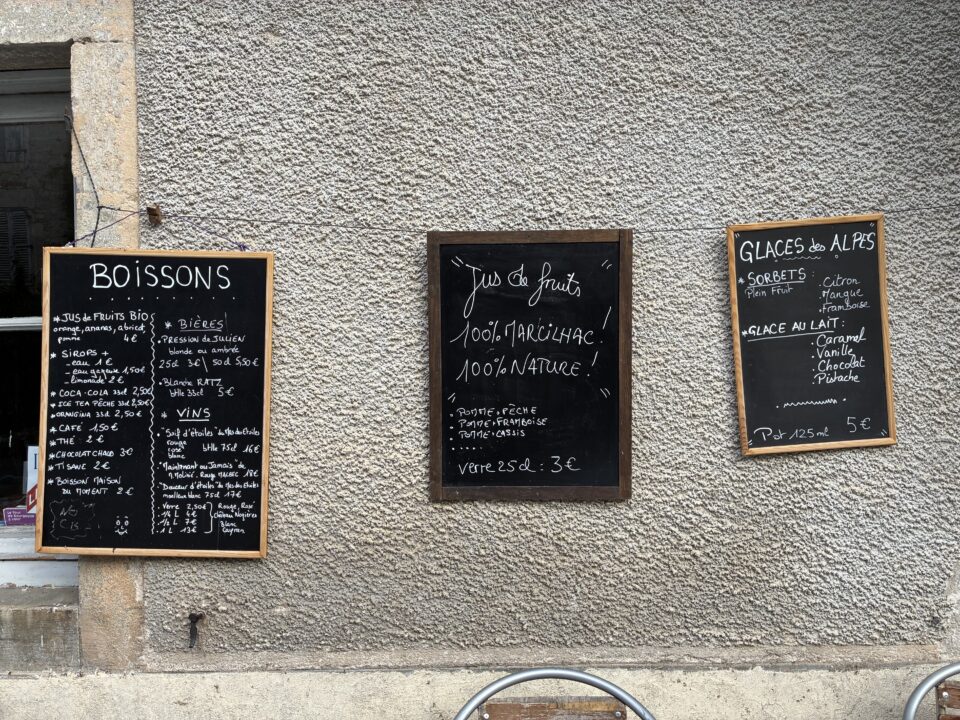 BOISSONS
* JUS de FRUITS BIO
orange, ananas, abricot,
pomme 4€
* SIROPS +
- eau 1€
- eau gazeuse 1,50€
- limonade 2€
* COCA-COLA 33cl 2,50€
* ICE TEA PÊCHE 33cl 2,50€
* ORANGINA 33cl 2,50€
* CAFÉ 1,50€
* THÉ : 2€
* CHOCOLAT CHAUD 3€
* TISANE 2€
* BOISSON MAISON
DU MOMENT 2€
* BIÈRES
. PRESSION de JULIEN
blonde ou ambrée
25cl 3€ \ 50cl 5,50€
. Blanche RATZ
btlle 33cl 5€
* VINS
. "Soif d'étoiles" du Mas des Etoiles
rouge
rosé btlle 75cl 16€
blanc
. "Maintenant ou Jamais" de
Rouge MALBEC 18€
. "Douceur d'étoiles" du Mas des Etoiles
moelleux blanc 75cl 17€
. Verre 2,50€
. 1/4 L 4€
. 1/2 L 7€
. 1 L 13€
Rouge, Rosé
château Nozières
Blanc
"Jus de fruits"
100% MARCILHAC !
100% NATURE !"
. POMME-PÊCHE
. POMME-FRAMBOISE
. POMME-CASSIS
. ....
Verre 25cl : 3€
"GLACES des ALPES"
* SORBETS :
Plein Fruit
. Citron
. Mangue
. Framboise
* GLACE AU LAIT :
. Caramel
. Vanille
. Chocolat
. Pistache
Pot 125ml 5€